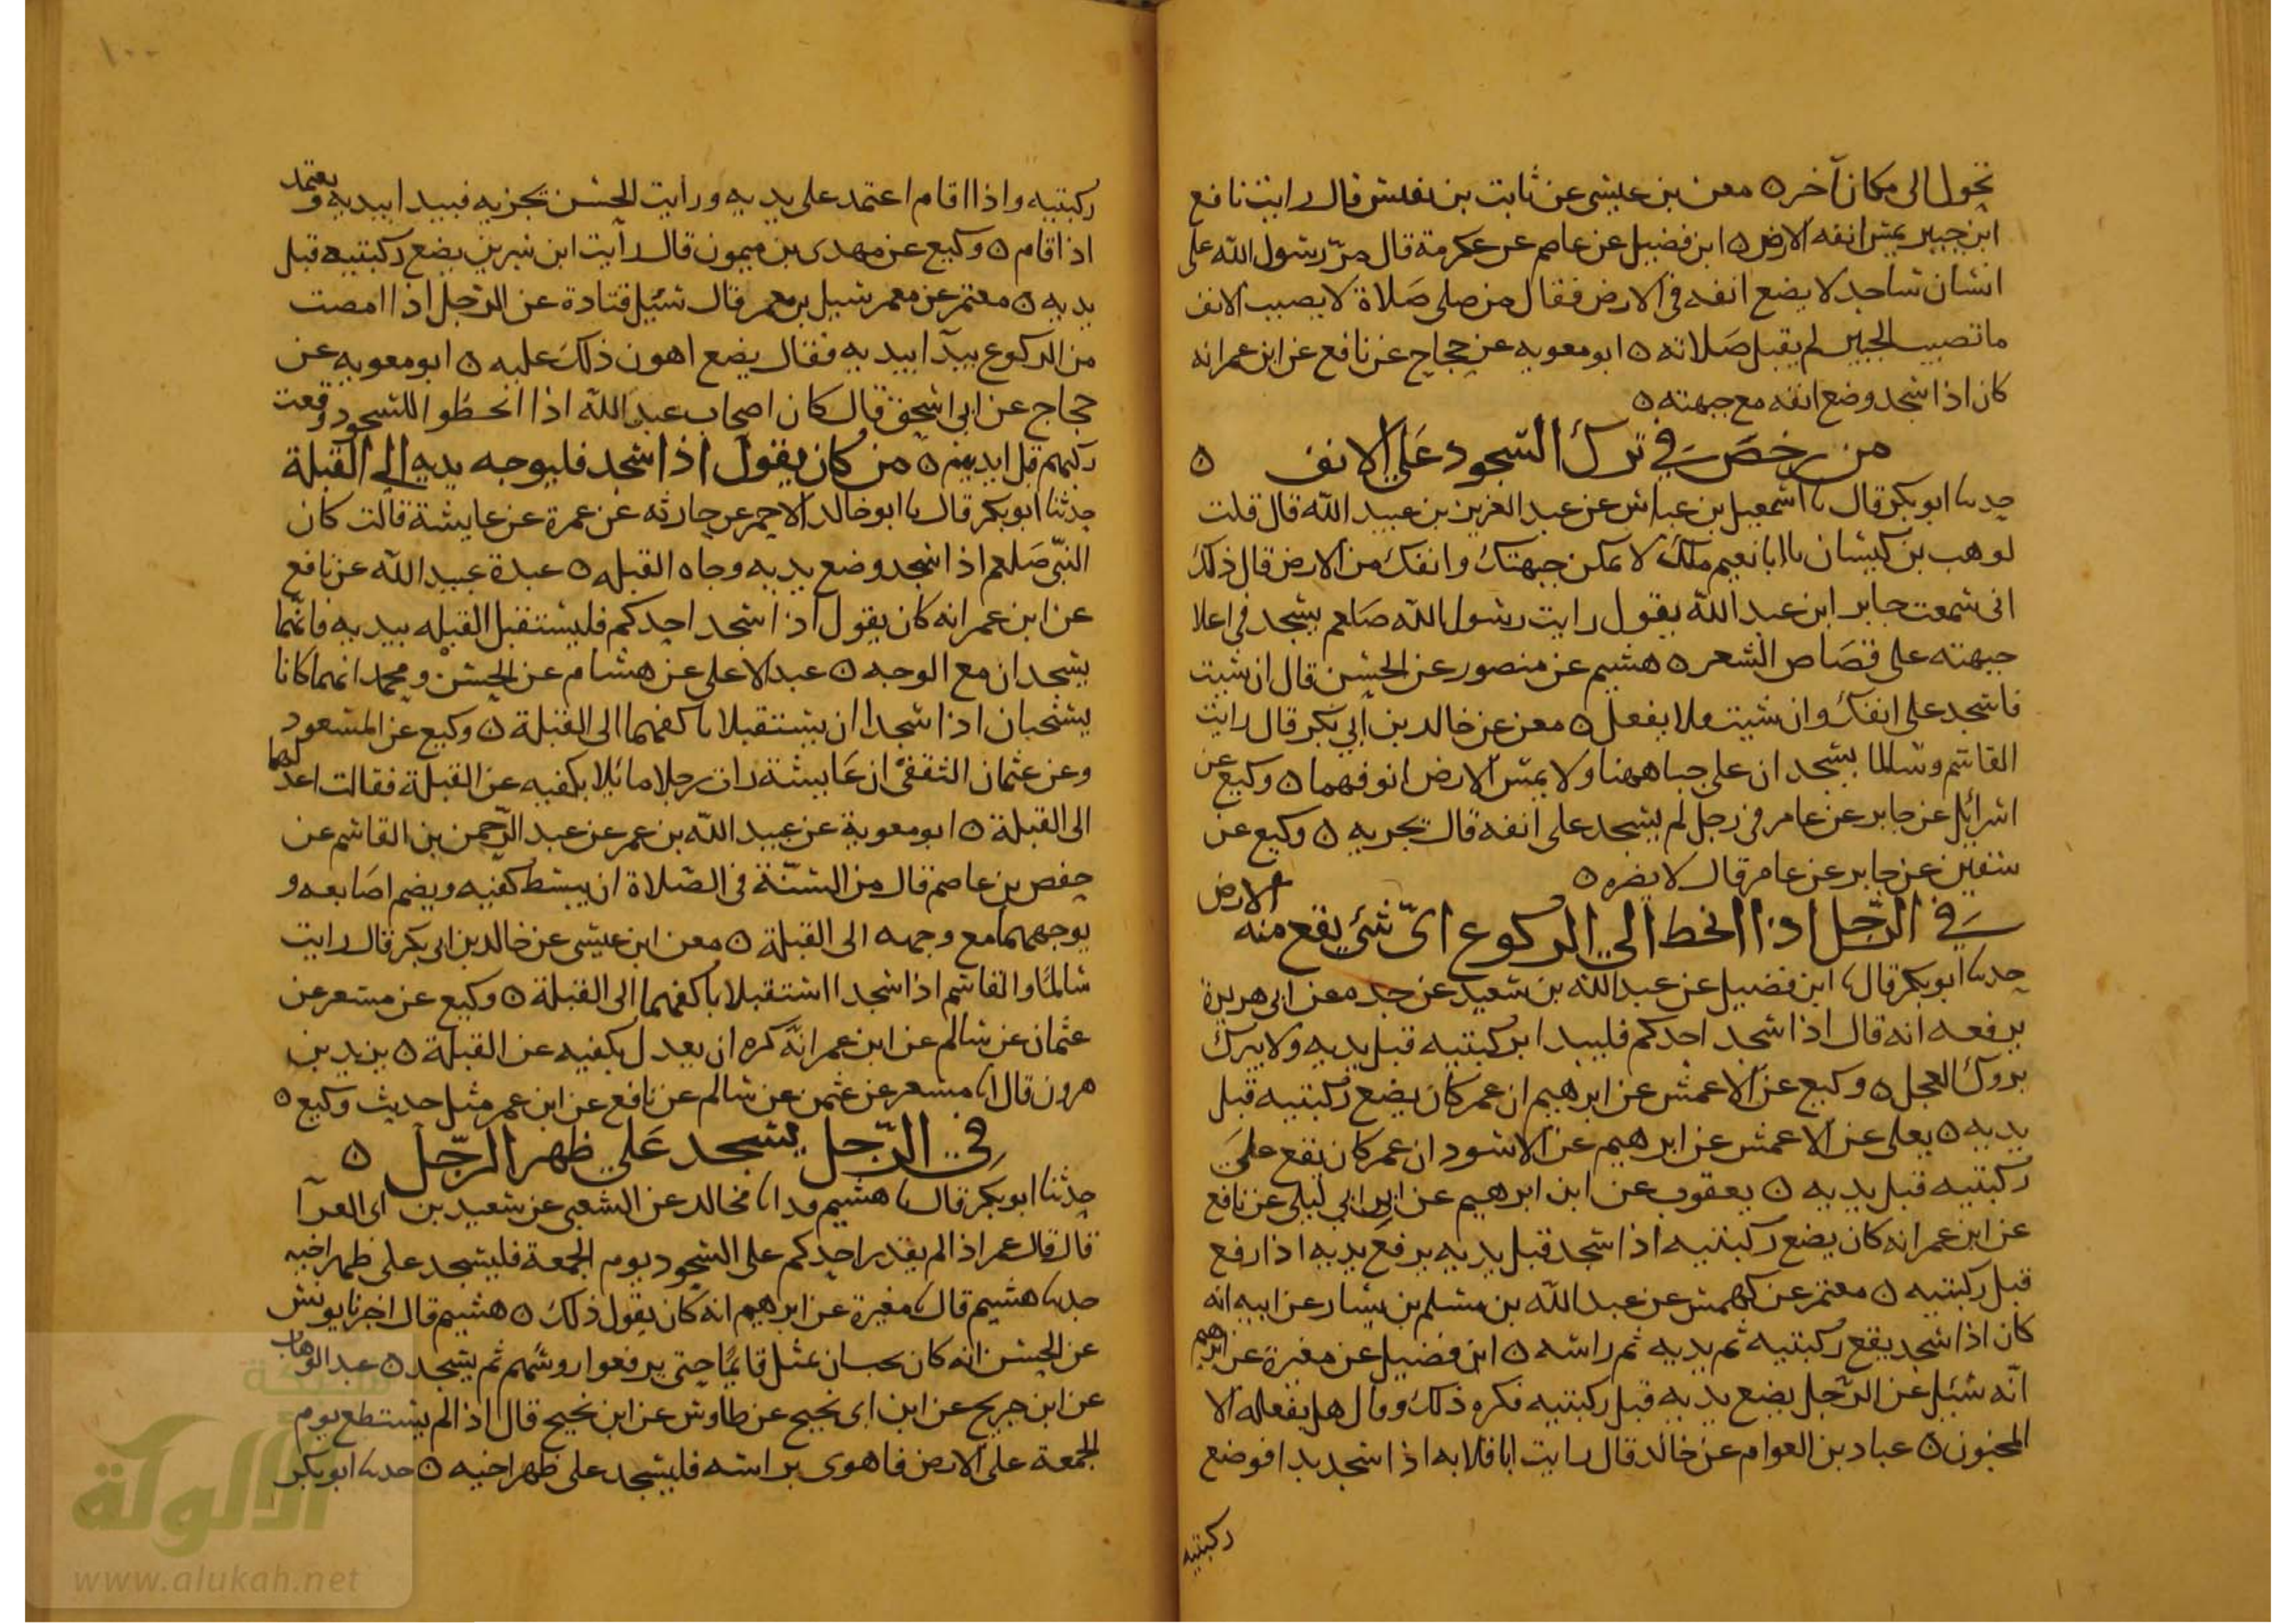 تحول الى مكان آخر ٥ معن بن عيسى عن ثابت بن قال رايت نافع
ابن جبير يمس انفه الارض ٥ ابن فضيل عن عاصم عن عكرمة قال مرّ رسول الله على
انسان ساجد لا يضع انفه في الارض فقال من صلى صلاة لا يصيب الانف
ما تصيب الجبين لم يقبل صلاته ٥ ابو معويه عن حجاج عن نافع عن ابن عمر انه
كان اذا سجد وضع انفه مع جبهته ٥
من رخص في ترك السجود على الانف ٥
حدثنا ابو بكر قال نا اسمعيل بن عياش عن عبد العزيز بن عبيد الله قال قلت
لوهب بن كيسان يا ابا نعيم ملك لا تمكن جبهتك وانفك من الارض قال ذلك
انى سمعت جابر ابن عبد الله يقول رايت رسول الله صلعم يسجد في اعلا
جبهته على قصاص الشعر ٥ هشيم عن منصور عن الحسن قال ان شيت
فاسجد على انفك وان شيت فلا يفعل ٥ معن عن خالد بن ابي بكر قال رايت
القاسم وسالما يسجدان على جباههما ولا يمس الارض انوفهما ٥ وكيع عن
اسرائل عن جابر عن عامر في رجل لم يسجد على انفه قال يجزيه ٥ وكيع عن
سفين عن جابر عن عامر قال لا يضره ٥
في الرّجل اذا انحط الى الركوع اىّ شئ يقع منه الارض
حدثنا ابو بكر قال نا ابن فضيل عن عبد الله بن سعيد عن جده عن ابي هريرة
يرفعه انه قال اذا سجد احدكم فليبدا بركبتيه قبل يديه ولا يبرك
بروك العجل ٥ وكيع عن الاعمش عن ابرهيم ان عمر كان يضع ركبتيه قبل
يديه ٥ يعلى عن الاعمش عن ابرهيم عن الاسود ان عمر كان يقع على
ركبتيه قبل يديه ٥ يعقوب عن ابن ابرهيم عن ابن ابي ليلى عن نافع
عن ابن عمر انه كان يضع ركبتيه اذا سجد قبل يديه يرفع يديه اذا رفع
قبل ركبتيه ٥ معتمر عن كهمس عن عبد الله بن مسلم بن يسار عن ابيه انه
كان اذا سجد يقع ركبتيه ثم يديه ثم راسه ٥ ابن فضيل عن مغيرة عن ابرهيم
انّه سئيل عن الرّجل يضع يديه قبل ركبتيه فكره ذلك وقال هل يفعله الا
المجنون ٥ عباد بن العوام عن خالد قال رايت ابا قلابه اذا سجد بدا فوضع
ركبتيه
١٠٠
ركبتيه واذا اقام اعتمد على يديه ورايت الحسن يجزيه فيبدا بيديه ويعتمد
اذا قام ٥ وكيع عن مهدى بن ميمون قال رأيت ابن سيرين يضع ركبتيه قبل
يديه ٥ معتمر عن معمر قال سئيل قتادة عن الرّجل اذا
من الركوع يبدآ بيديه فقال يضع اهون ذلك عليه ٥ ابو معويه عن
حجاج عن ابي اسحق قال كان اصحاب عبد الله اذا انحطوا للسجود وقعت
ركبهم قبل ايديهم ٥ من كان يقول اذا سجد فليوجه يديه الى القبلة
حدثنا ابو بكر قال نا ابو خالد الاحمر عن حارثه عن عمرة عن عايشة قالت كان
النبّى صلعم اذا سجد وضع يديه وجاه القبله ٥ عبدة عبيد الله عن نافع
عن ابن عمر انه كان يقول اذا سجد احدكم فليستقبل القبله بيديه فانهما
يسجدان مع الوجه ٥ عبد الاعلى عن هشام عن الحسن ومحمد انهما كانا
يستحبان اذا سجدا ان يستقبلا باكفهما الى القبلة ٥ وكيع عن المسعود
وعن عثمان الثقفى ان عايشة رات رجلا مائلا بكفيه عن القبلة فقالت اعدلهما
الى القبلة ٥ ابو معوية عن عبيد الله بن عمر عن عبد الرّحمن بن القاسم عن
حفص بن عاصم قال من السّنّة في الصلاة ان يبسط كفيه ويضم اصابعه و
يوجههما مع وجهه الى القبلة ٥ معن ابن عيسى عن خالد بن ابي بكر قال رايت
سالمًا والقاسم اذا سجدا استقبلا باكفهما الى القبلة ٥ وكيع عن مسعر عن
عثمان عن سالم عن ابن عمر انّه كره ان يعدل بكفيه عن القبلة ٥ يزيد بن
هرون قال انا مسعر عن عثمن عن سالم عن نافع عن ابن عمر مثل حديث وكيع ٥
في الرّجل يسجد على ظهر الرّجل ٥
حدثنا ابو بكر قال نا هشيم انا مخالد عن الشعبى عن سعيد بن
قال قال عمر اذا لم يقدر احدكم على السجود يوم الجمعة فليسجد على ظهر اخيه
حدثنا هشيم قال نا مغيرة عن ابرهيم انه كان يقول ذلك ٥ هشيم قال اخبرنا يونس
عن الحسن انه كان قايمًا حتى يرفعوا روسهم ثم يسجد ٥ عبد الوهاب
عن ابن جريج عن ابن ابى نجيح عن طاوس عن ابن نجيح قال اذا لم يستطع يوم
الجمعة على الارض فاهوى براسه فليسجد على ظهر اخيه ٥ حدثنا ابو بكر
شبكة
الألوكة
www.alukah.net